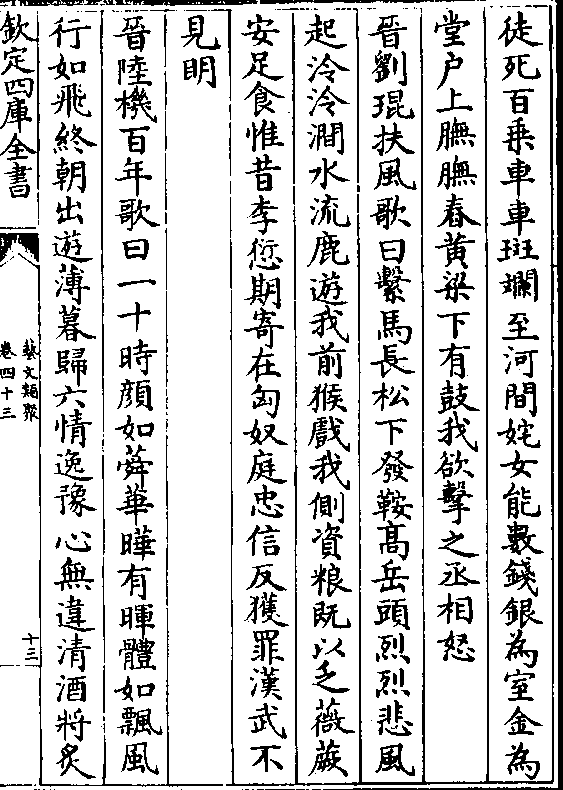 徒死百乗車車班斕至河間姹女能數錢銀為室金為
堂户上膴膴舂黄梁下有鼓我欲擊之丞相怒
晉劉琨扶風歌曰繫馬長松下發鞍髙岳頭烈烈悲風
起泠泠澗水流鹿遊我前猴戲我側資粮既以乏薇蕨
安足食惟昔李愆期寄在匈奴庭忠信反獲罪漢武不
見明
晉陸機百年歌曰一十時顔如蕣華曄有暉體如飄風
行如飛終朝出遊薄暮歸六情逸豫心無違清酒將炙
欽定四庫全書
藝文類聚
卷四十三
十三